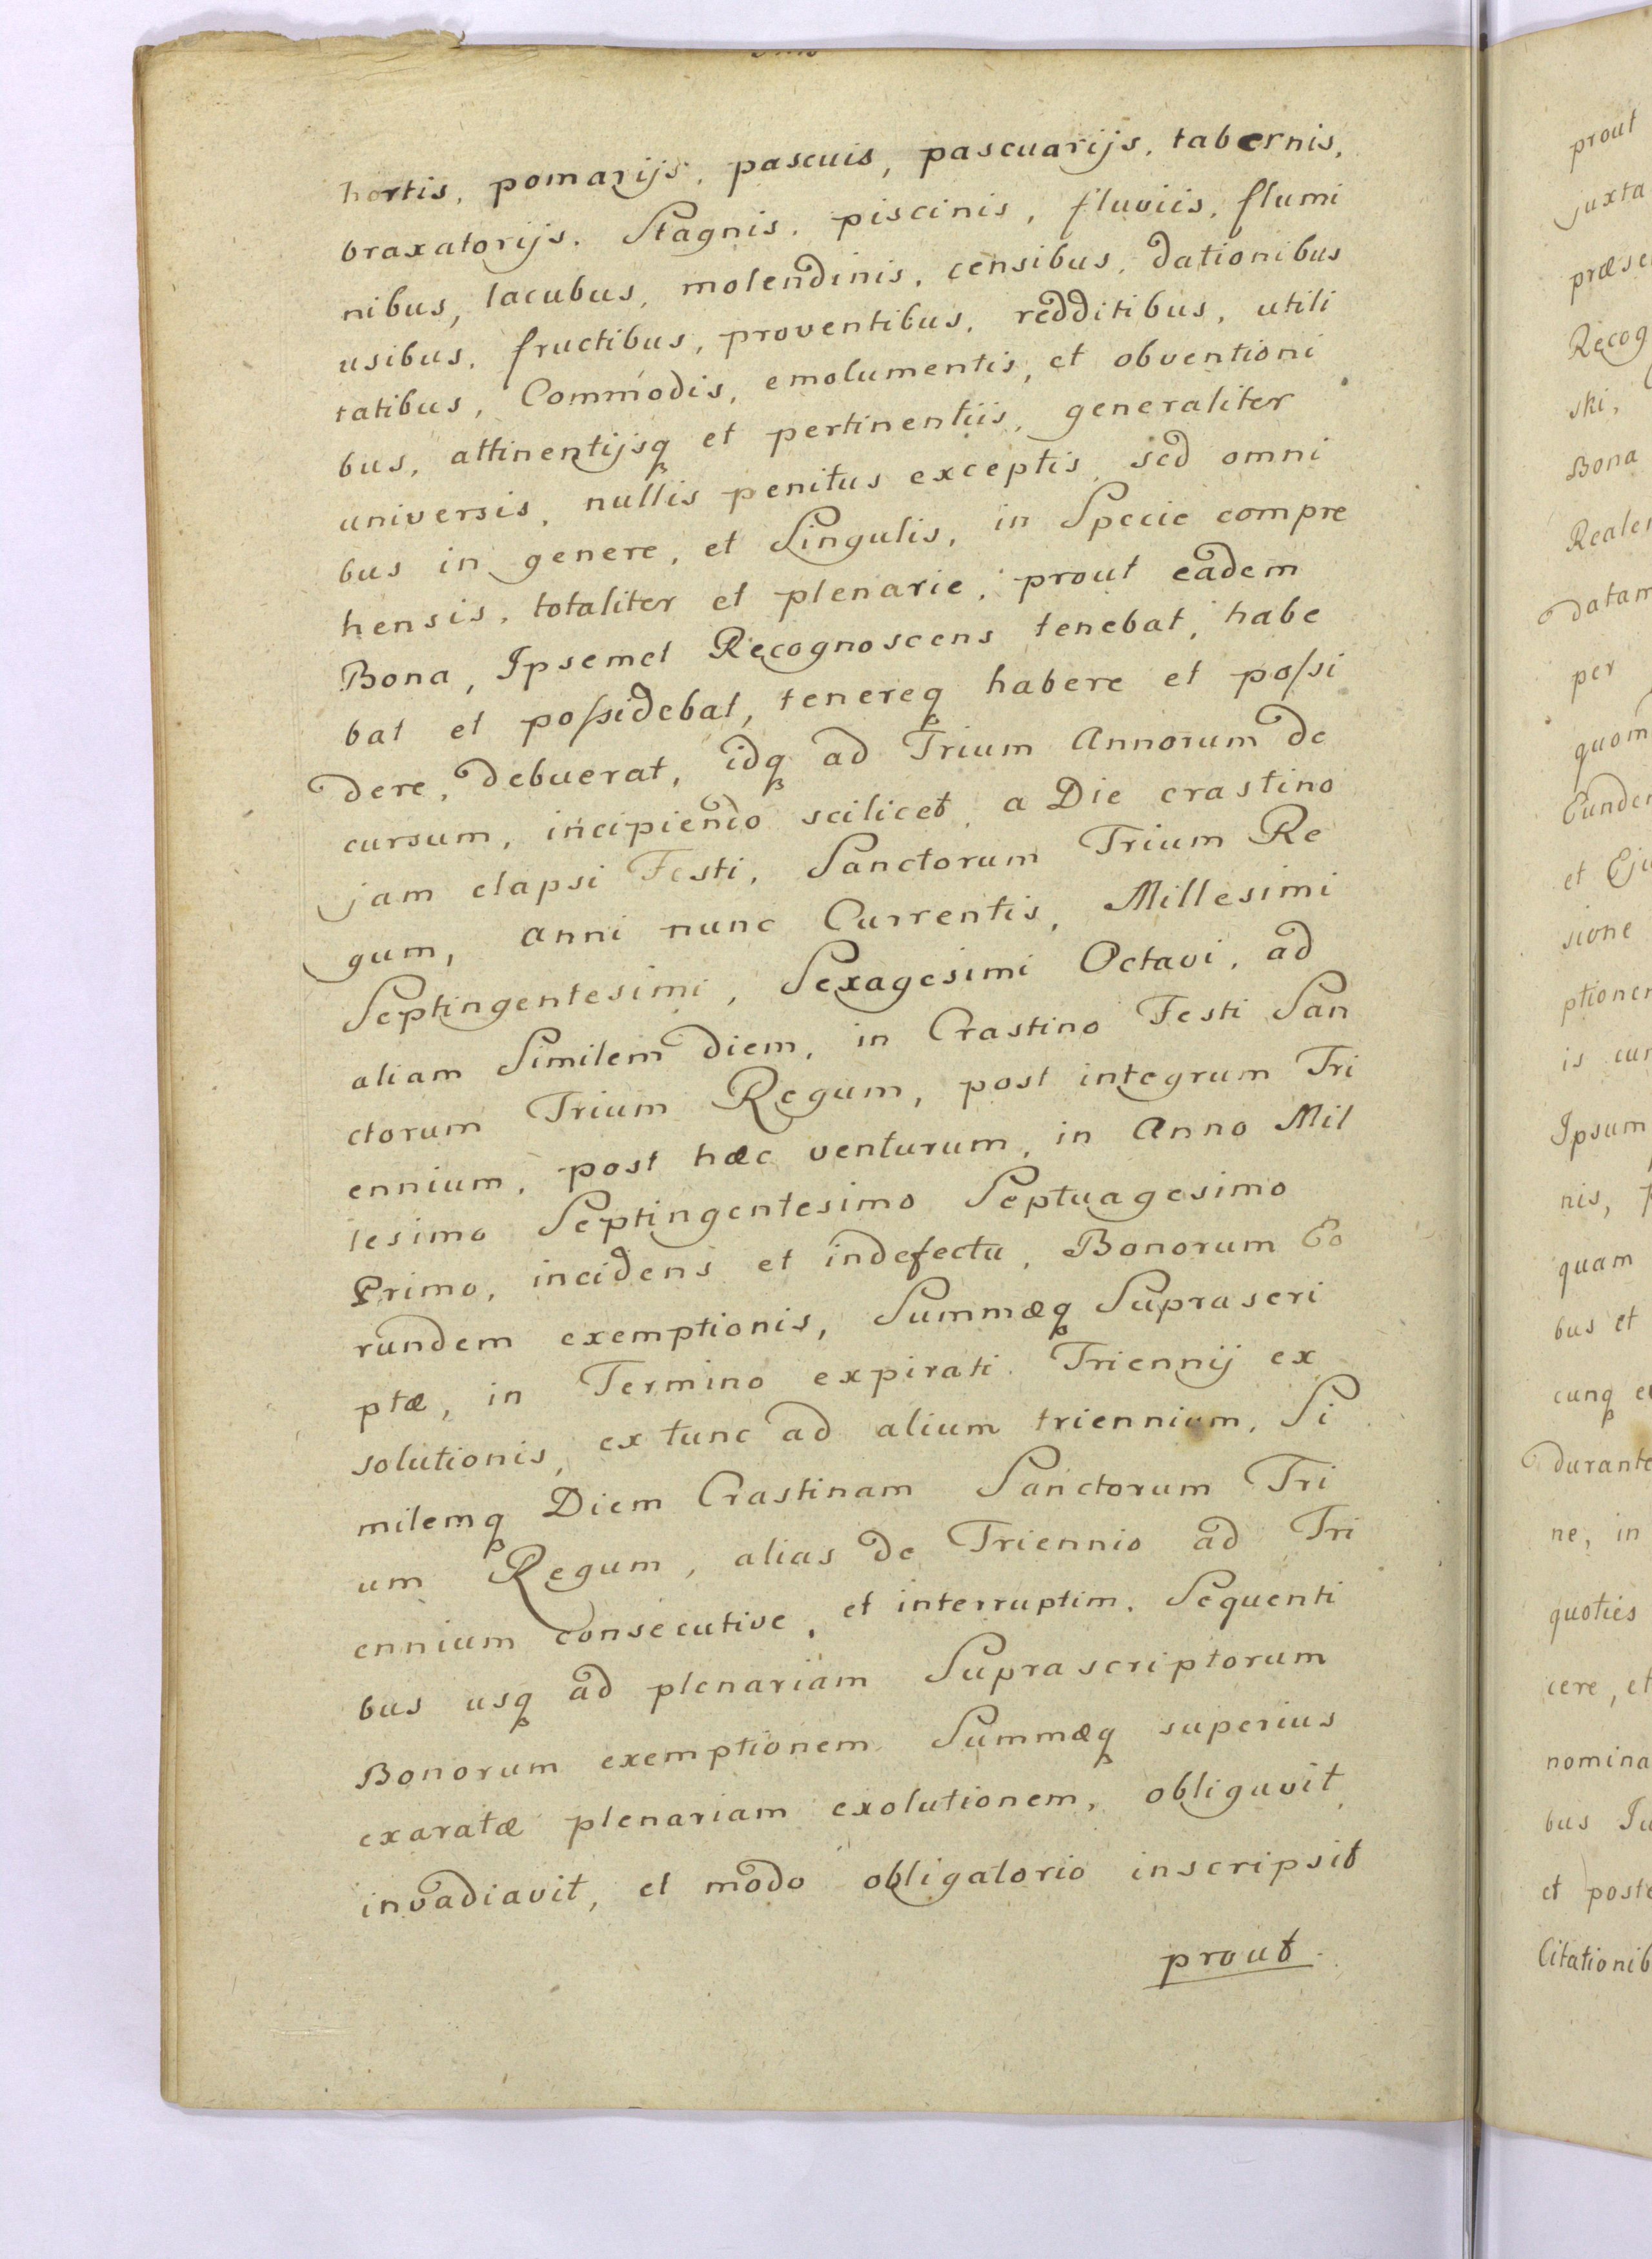 hortis, pomarijs, pascuis, pascuarijs, tabernis,
braxatorijs, Stagnis, piscinis, fluviis, flumi
nibus, lacubus, molendinis, censibus, dationibus
usibus, fructibus, proventibus, redditibus, utili
tatibus, Commodis, emolumentis, et obventioni
bus, attinentijsq et pertinentiis, generaliter
universis, nullis penitus exceptis, sed omni
bus in genere, et Singulis, in Specie compre
hensis, totaliter et plenarie, prout eadem
Bona, Ipsemet Recognoscens tenebat, habe
bat et possidebat, tenereq habere et possi
dere, debuerat, idq ad Trium Annorum de
cursum, incipiendo scilicet, a Die crastino
jam elapsi Festi, Sanctorum Trium Re
gum, anni nunc Currentis, Millesimi
Septingentesimi, Sexagesimi Octavi, ad
aliam Similem diem, in Crastino Festi San
ctorum Trium Regum, post integrum Tri
ennium, post hæc venturum, in Anno Mil
lesimo Septingentesimo Septuagesimo
Primo, incidens et indefectu, Bonorum Eo
rundem exemptionis, Summæq Suprascri
ptæ, in Termino expirati Triennij ex
solutionis, ex tunc ad alium triennium, Si
milemq Diem Crastinam Sanctorum Tri
um Regum, alias de Triennio ad Tri
ennium consecutive, et interruptim, Sequenti
bus usq ad plenariam Suprascriptorum
Bonorum exemptionem Summæq superius
exaratæ plenariam exolutionem, obligavit,
invadiavit, et modo obligatorio inscripsit
prout
prout
juxta
Recog
ski,
Bona
datam
per
et
sione
is
Ipsum
nis,
quam
bus et
cunq
durante
ne, in
quoties
cere, et
nomina
bus
et